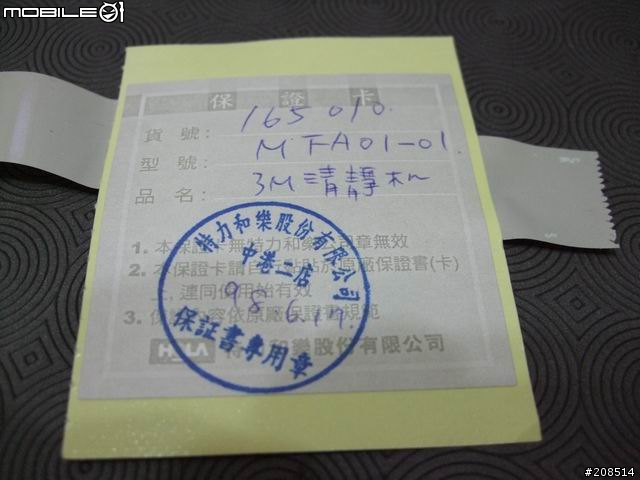 MOBILE01
保 證 卡
貨 號: 165010.
型 號: MFA01-01.
品 名: 3M清靜机
1. 本保證卡無特力和樂公司章無效
2. 本保證卡請自 黏貼於原廠保證書(卡)
上,連同使用始有效
3. 保證內容依原廠保證書規範
HOLA 特力和樂股份有限公司
特力和樂股份有限公司
中港二店
98.6.
保証書專用章
#208514